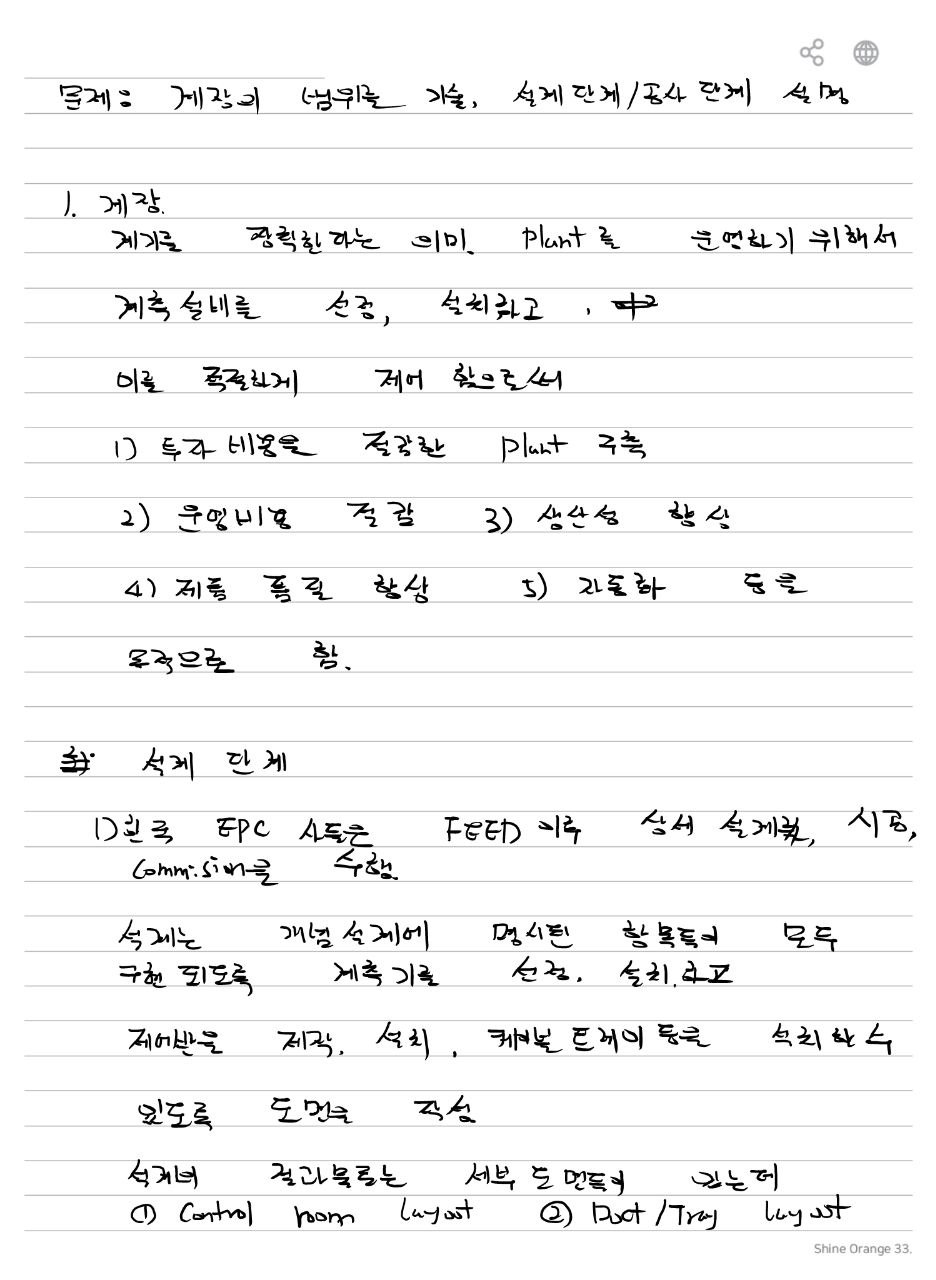 문제: 계장의 범위를 기술, 설계단계/공사 단계 설명
1. 계장.
계기를 장착한다는 의미. Plant를 운영하기 위해서
계측설비를 선정, 설치하고,
이를 적절하게 제어 함으로써
1) 투자비용을 절감한 plant 구축
2) 운영비용 절감 3) 생산성 향상
4) 제품 품질 향상 5) 자동화 등을
목적으로 함.
설계 단계
1) 한국 EPC 사들은 FEED 이후 상세 설계, 시공,
Commision을 수행.
설계는 개념설계에 명시된 항목들이 모두
구현 되도록 계측기를 선정. 설치.하고
제어반을 제작, 설치, 케이블 트레이 등을 설치할 수
있도록 도면을 작성
설계의 결과물로는 세부 도면들이 있는데
① Control room layout ② Duct/Tray layout
Shine Orange 33.